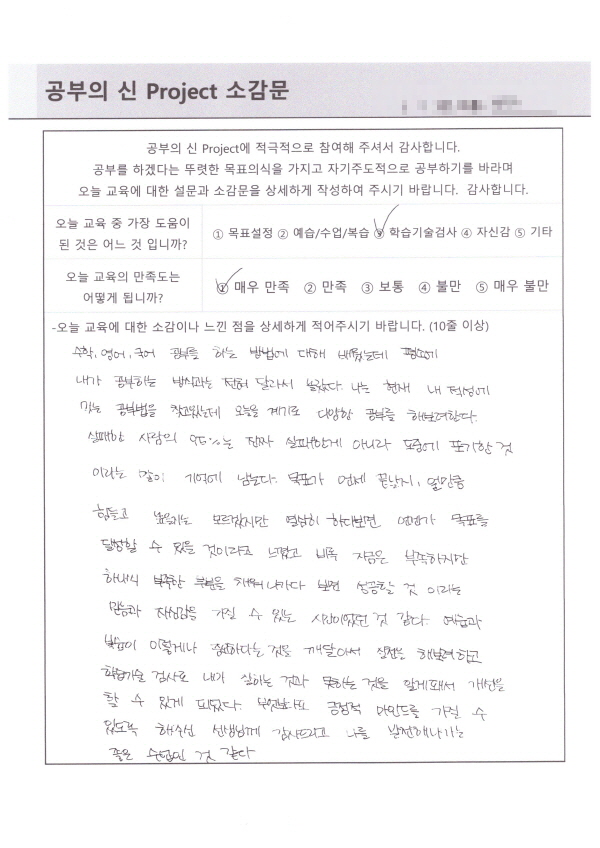 공부의 신 Project 소감문
공부의 신 Project에 적극적으로 참여해 주셔서 감사합니다.
공부를 하겠다는 뚜렷한 목표의식을 가지고 자기주도적으로 공부하기를 바라며
오늘 교육에 대한 설문과 소감문을 상세하게 작성하여 주시기 바랍니다. 감사합니다.
오늘 교육 중 가장 도움이
된 것은 어느 것 입니까?
① 목표설정 ② 예습/수업/복습 ③ 학습기술검사 ④ 자신감 ⑤ 기타
오늘 교육의 만족도는
어떻게 됩니까?
① 매우 만족 ② 만족 ③ 보통 ④ 불만 ⑤ 매우 불만
-오늘 교육에 대한 소감이나 느낀 점을 상세하게 적어주시기 바랍니다. (10줄 이상)
수학, 영어, 국어 공부를 하는 방법에 대해 배웠는데 평소에
내가 공부하는 방식과는 전혀 달라서 놀랐다. 나는 현재 내 적성에
맞는 공부법을 찾고있는데 오늘을 계기로 다양한 공부를 해보려한다.
실패한 사람의 95%는 진짜 실패한게 아니라 도중에 포기한 것
이라는 말이 기억에 남는다. 목표가 언제 끝날지, 얼만큼
힘들고 모르겠지만 열심히 하다보면 언젠가 목표를
달성할 수 있을 것이라고 느꼈고 비록 지금은 부족하지만
하나씩 부족한 부분을 채워나가다 보면 성공할 것 이라는
믿음과 자신감을 가질 수 있는 시간이었던 것 같다. 예습과
복습이 이렇게나 중요하다는 것을 깨달아서 실천을 해보려하고
학습기술 검사로 내가 잘하는 것과 못하는 것을 알게돼서 개선을
할 수 있게 되었다. 긍정적 마인드를 가질 수
있도록 해주신 선생님께 감사드리고 나를 발전해나가는
좋은 수업인 것 같다